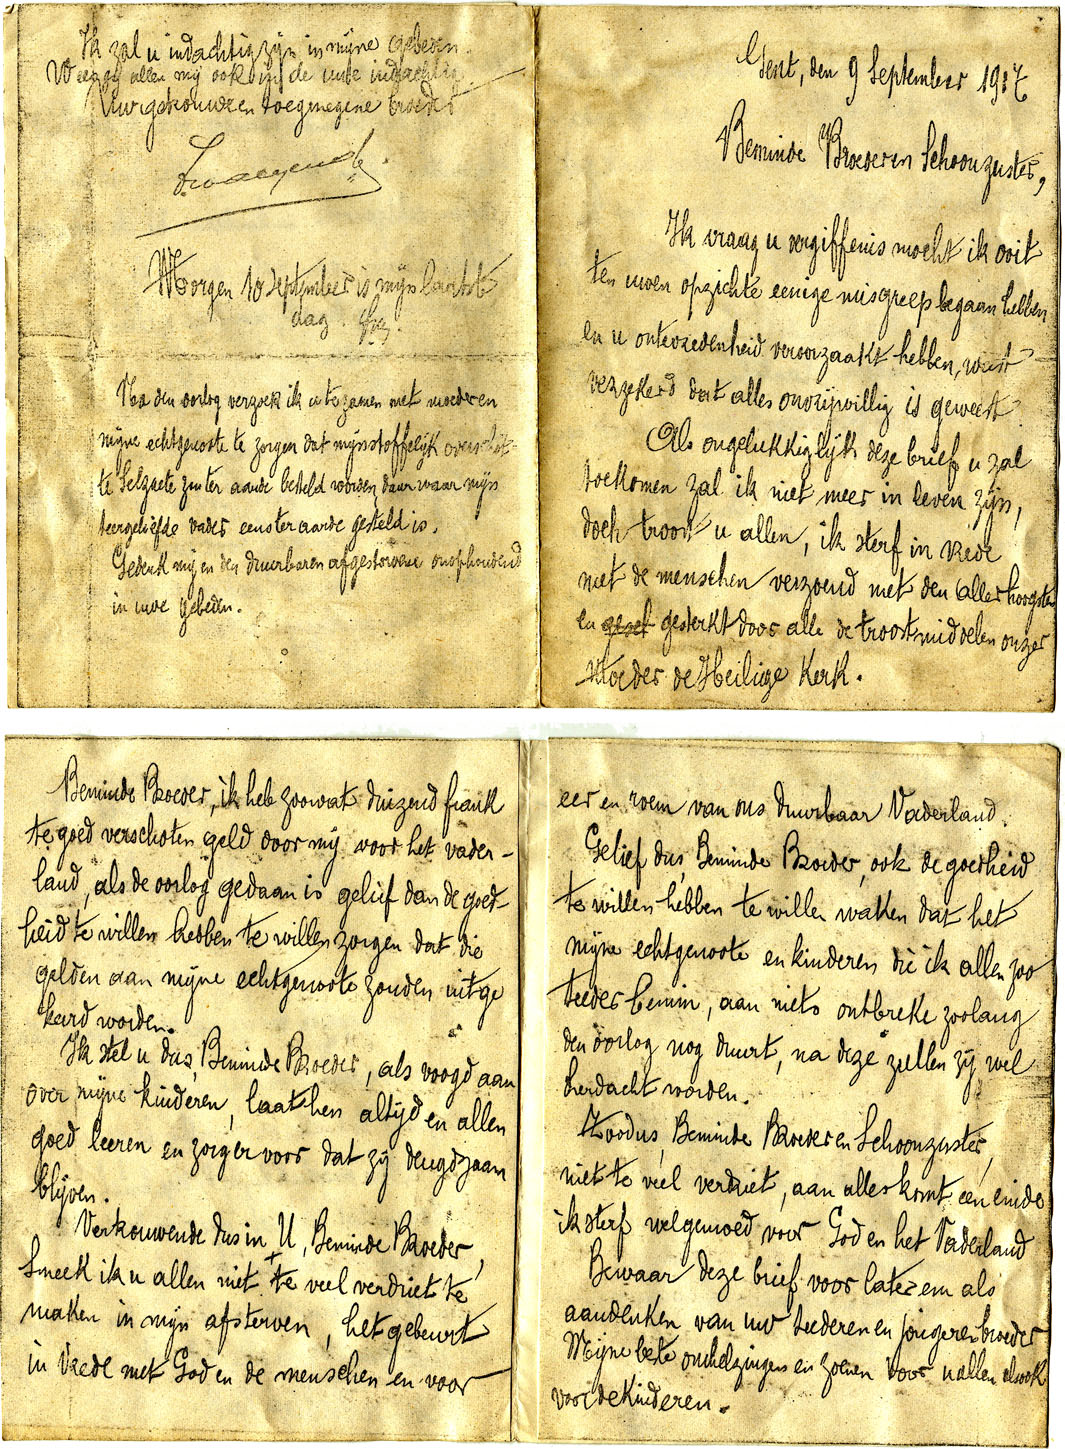 Gent, den 9 September 1917
Beminde Broeder en Schoonzuster,
Ik vraag u vergiffenis mocht ik ooit
ten uwen opzichte eenige misgreep begaan hebben
en u ontevredenheid veroorzaakt hebben, weest
verzekerd dat alles onvrijwillig is geweest
Als ongelukkiglijk deze brief u zal
toekomen zal ik niet meer in leven zijn,
doch troost u allen, ik sterf in vrede
met de menschen verzoend met den Allerhoogsten
en gesterkt door alle de troostmiddelen onzer
Moeder de Heilige Kerk.
Beminde Broeder, ik heb zoowat duizend frank
te goed verschoten geld door mij voor het vader-
land, als de oorlog gedaan is gelief dan de goed-
heid te willen hebben te willen zorgen dat die
gelden aan mijne echtgenoote zouden uitge
keerd worden.
Ik stel u dus, Beminde Broeder, als voogd aan
over mijne kinderen, laat hen altijd en allen
goed leeren en zorg er voor dat zij deugdzaam
blijven.
Vertrouwende dus in U, Beminde Broeder,
smeek ik u allen niet te veel verdriet te
maken in mijn afsterven, het gebeurt
in vrede met God en de menschen en voor
eer en roem van ons duurbaar Vaderland.
Gelief dus, Beminde Broeder, ook de goedheid
te willen hebben te willen waken dat het
mijne echtgenoote en kinderen die ik allen zoo
teeder bemin, aan niets ontbreke zoolang
den oorlog nog duurt, na deze zullen zij wel
herdacht worden.
Zoodus, Beminde Broeder en Schoonzuster,
niet te veel verdriet, aan alles komt een einde
ik sterf welgemoed voor God en het Vaderland
Bewaar deze brief voor later en als
aandenken van uw teederen en jongeren broeder
Mijne beste omhelzingen en zoenen voor u allen alsook
voor de Kinderen.
Ik zal u indachtig zijn in mijne gebeden.
Weest gij allen mij ook in de uwe indachtig
Uw getrouwe en toegenegene broeder
Morgen 10 September is mijn laatste
dag.
Na den oorlog verzoek ik u te zamen met moeder en
mijne echtgenoote te zorgen dat mijn stoffelijk overschot
te Selzaete ter aarde besteld worden daar waar mijn
teergeliefde vader eens ter aarde gesteld is.
Gedenk mij en den duurbaren afgestorvene onophoudend
in uwe gebeden.